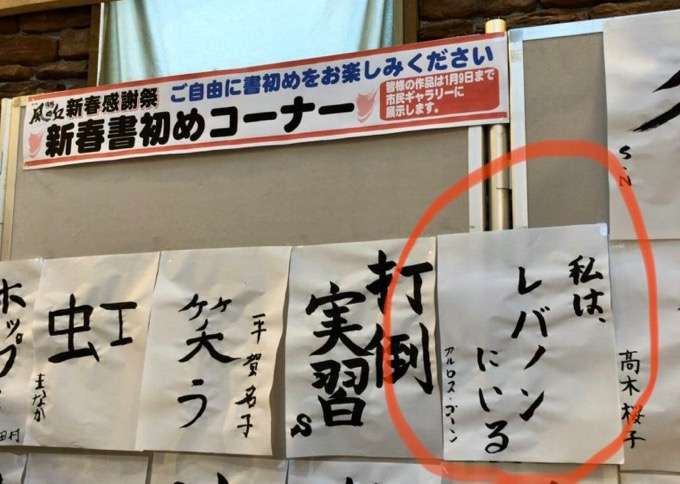 新春感謝祭
ご自由に書初めをお楽しみください
新春書初めコーナー
皆様の作品は1月9日まで
市民ギャラリーに
展示します。
S.N
私は、
レバノン
にいる
カルロス・ゴーン
打倒
実習
S
笑う
平賀名子
虹
まなか
ホップ
田村
高木桜子